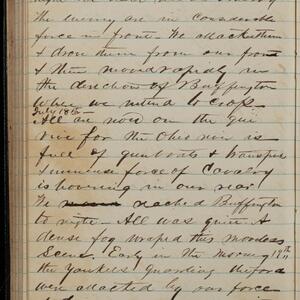 the enemy are in considerable
force in front - We attacked them
& drove them from our front
& then moved rapidly in
the direction of Buffington
where we intend to cross
July 18th
All are now on the qui
vive for the Ohio river is
full of gunboats & transports
& immense force of Cavalry
is hovering in our rear
We reached Buffington
to night - All was quiet A
dense fog wraped this woodess
Scene. Early in the morning 19th
the Yankees guarding the ford
were attacked by our force